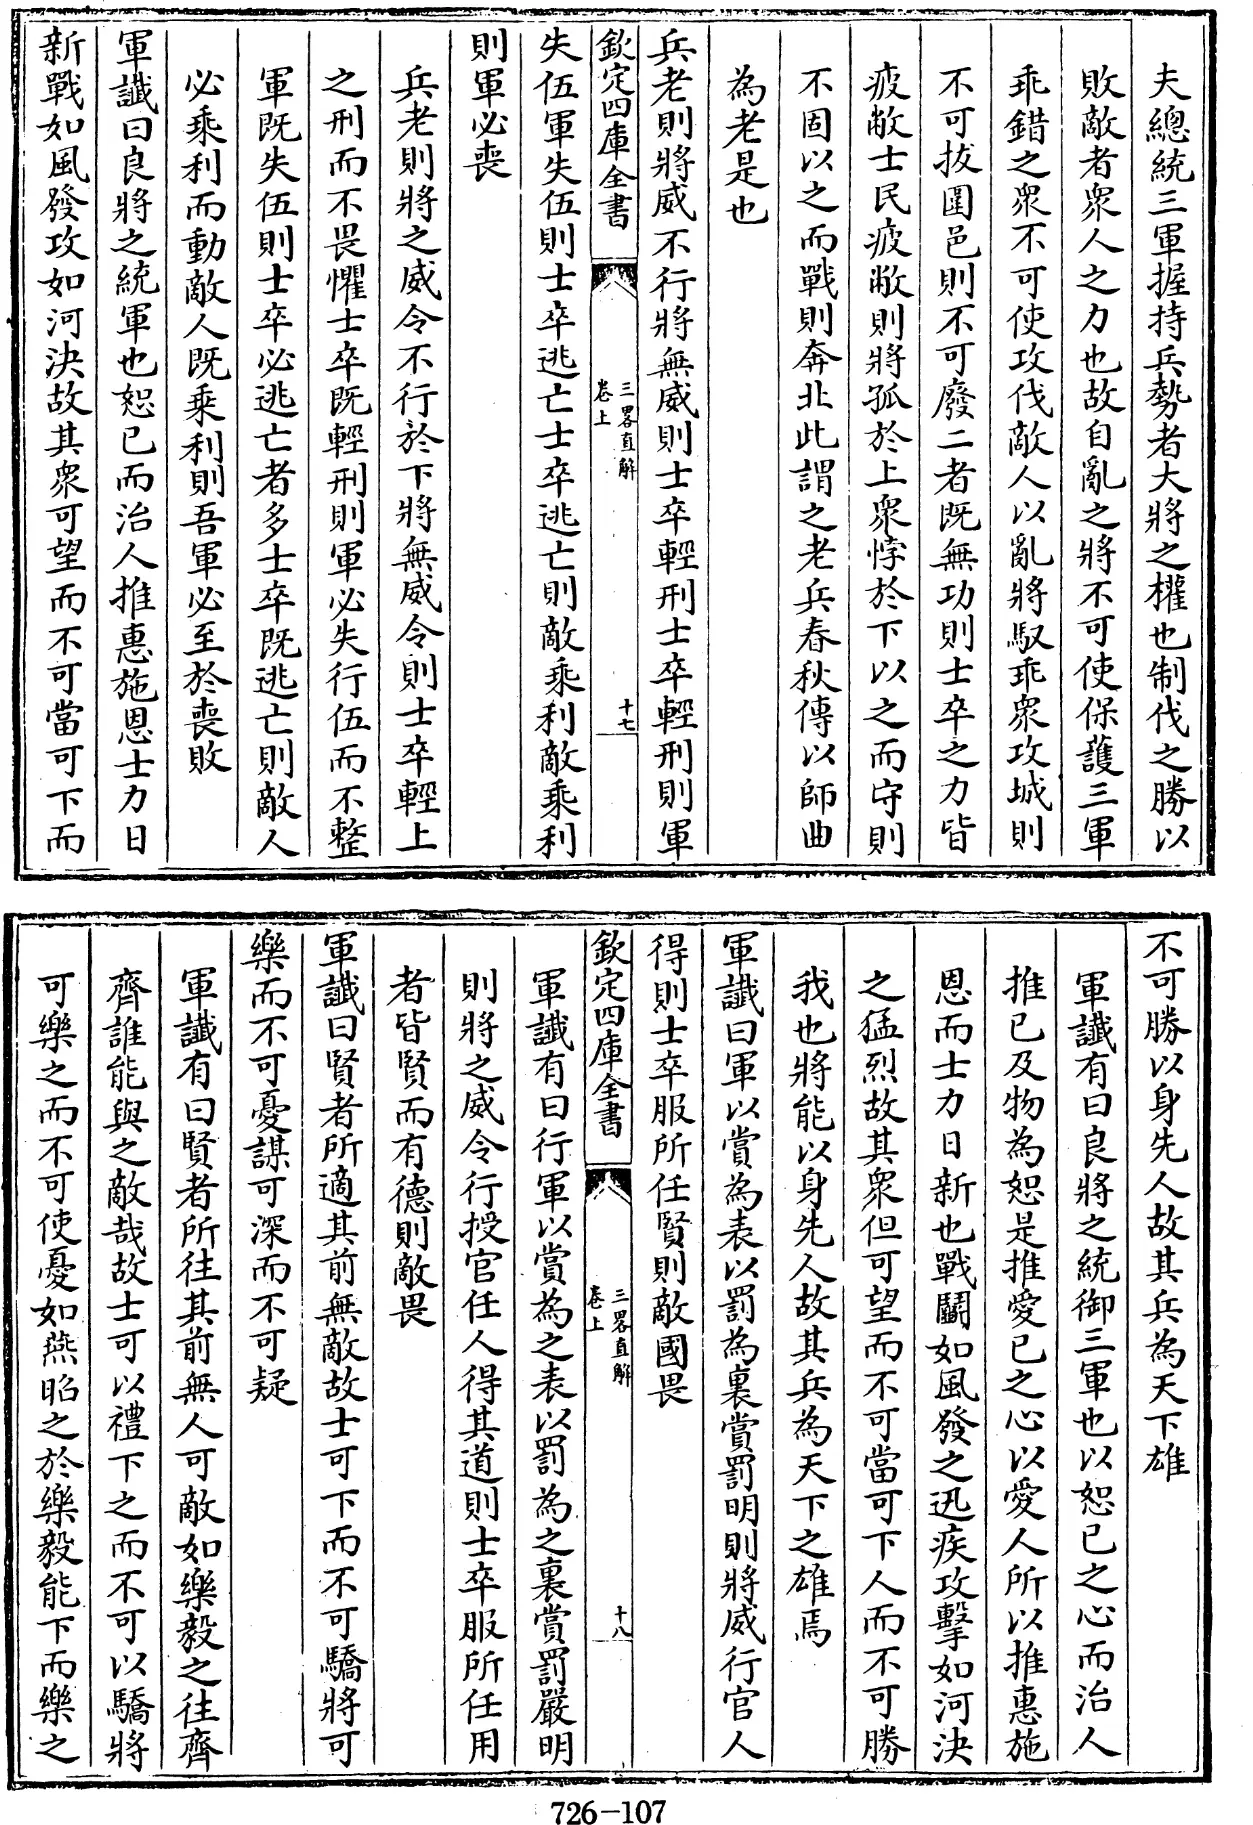 夫總統三軍握持兵勢者大將之權也制伐之勝以
敗敵者衆人之力也故自亂之將不可使保護三軍
乖錯之衆不可使攻伐敵人以亂將馭乖衆攻城則
不可拔圍邑則不可廢二者既無功則士卒之力皆
疲敝士民疲敝則將孤於上衆悖於下以之而守則
不固以之而戰則奔北此謂之老兵春秋傳以師曲
為老是也
兵老則將威不行將無威則士卒輕刑士卒輕刑則軍
欽定四庫全書
三畧直解
卷上
十七
失伍軍失伍則士卒逃亡士卒逃亡則敵乘利敵乘利
則軍必喪
兵老則將之威令不行於下將無威令則士卒輕上
之刑而不畏懼士卒既輕刑則軍必失行伍而不整
軍既失伍則士卒必逃亡者多士卒既逃亡則敵人
必乘利而動敵人既乘利則吾軍必至於喪敗
軍讖曰良將之統軍也恕已而治人推惠施恩士力日
新戰如風發攻如河決故其衆可望而不可當可下而
不可勝以身先人故其兵為天下雄
軍讖有曰良將之統御三軍也以恕已之心而治人
推已及物為恕是推愛已之心以愛人所以推惠施
恩而士力日新也戰鬭如風發之迅疾攻擊如河決
之猛烈故其衆但可望而不可當可下人而不可勝
我也將能以身先人故其兵為天下之雄焉
軍讖曰軍以賞為表以罰為裏賞罰明則將威行官人
得則士卒服所任賢則敵國畏
欽定四庫全書
三畧直解
卷上
十八
軍讖有曰行軍以賞為之表以罰為之裏賞罰嚴明
則將之威令行授官任人得其道則士卒服所任用
者皆賢而有德則敵畏
軍讖曰賢者所適其前無敵故士可下而不可驕將可
樂而不可憂謀可深而不可疑
軍讖有曰賢者所往其前無人可敵如樂毅之往齊
齊誰能與之敵哉故士可以禮下之而不可以驕將
可樂之而不可使憂如燕昭之於樂毅能下而樂之
726-107